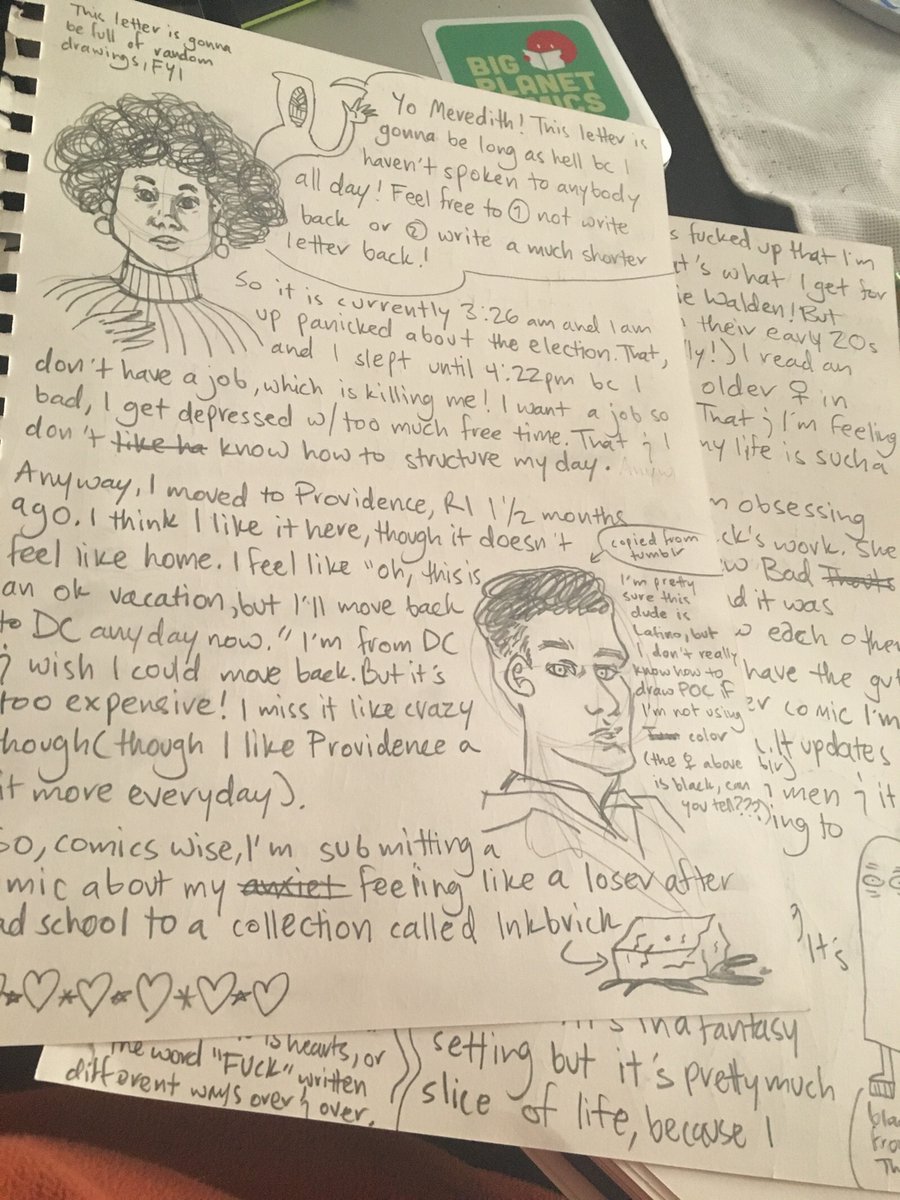 This letter is gonna
be full of random
drawings, FYI
BIG
PLANET
COMICS
Yo Meredith! This letter is
gonna be long as hell bc I
haven't spoken to anybody
all day! Feel free to ① not write
back or ② write a much shorter
letter back!
So it is currently 3:26 am and I am
up panicked about the election. That,
and I slept until 4:22pm bc I
don't have a job, which is killing me! I want a job so
bad, I get depressed w/too much free time. That & I
don't like ha know how to structure my day. Anyw
Anyway, I moved to Providence, RI 1 1/2 months
ago. I think I like it here, though it doesn't
feel like home. I feel like "oh, this is
an ok vacation, but I'll move back
to DC any day now." I'm from DC
& wish I could move back. But it's
too expensive! I miss it like crazy
though (though I like Providence a
it more everyday).
copied from
tumblr
I'm pretty
sure this
dude is
Latino, but
I don't really
know how to
draw POC if
I'm not using
color
(the ♀ above
is black, can
you tell???)
So, comics wise, I'm submitting a
mic about my anxiet feeling like a loser after
ad school to a collection called Inkbrick
s fucked up that I'm
t's what I get for
ie Walden! But
their early 20s
lly!) I read an
older ♀ in
That & I'm feeling
my life is such a
obsessing
ck's work. She
w Bad
d it was
each other
have the gut
er comic I'm
It updates
men & it
ing to
It's
is hearts, or
the word "FUCK" written
different ways over & over.
in a fantasy
setting but it's pretty much
slice of life, because I